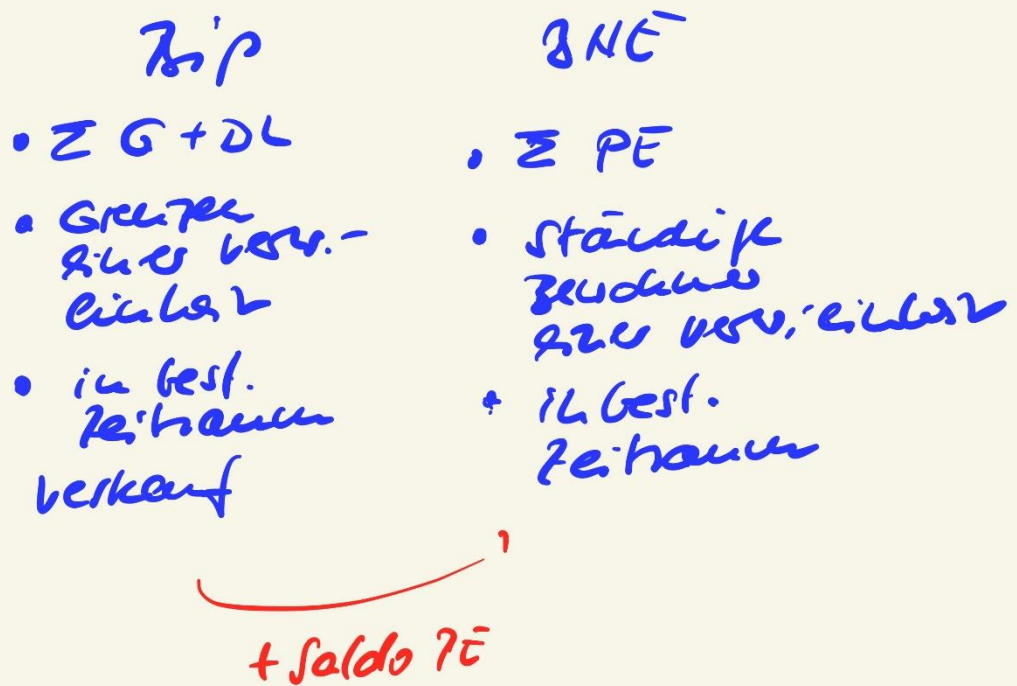 Bip
• Σ G + DL
• Grenzen
einer verw.-
einheit
• in best.
Zeitraum
verkauf
BNE
• Σ PE
• ständige
Bewohner
einer verw.-einheit
• in best.
Zeitraum
+ Saldo PE